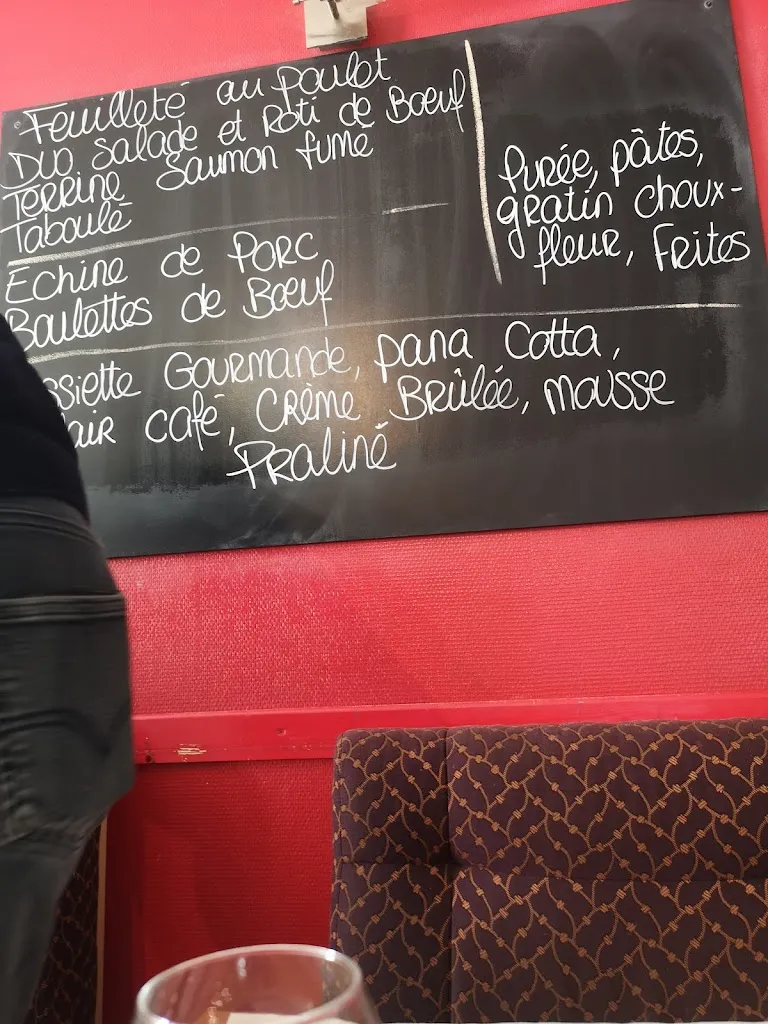 Feuilleté au poulet
Duo Salade et Roti de Boeuf
Terrine Saumon fumé
Taboulé
Purée, pâtes,
gratin choux-
fleur, Frites
Echine de Porc
Boulettes de Boeuf
ssiette Gourmande, pana Cotta,
air café, Crème Brûlée, mousse
Praliné